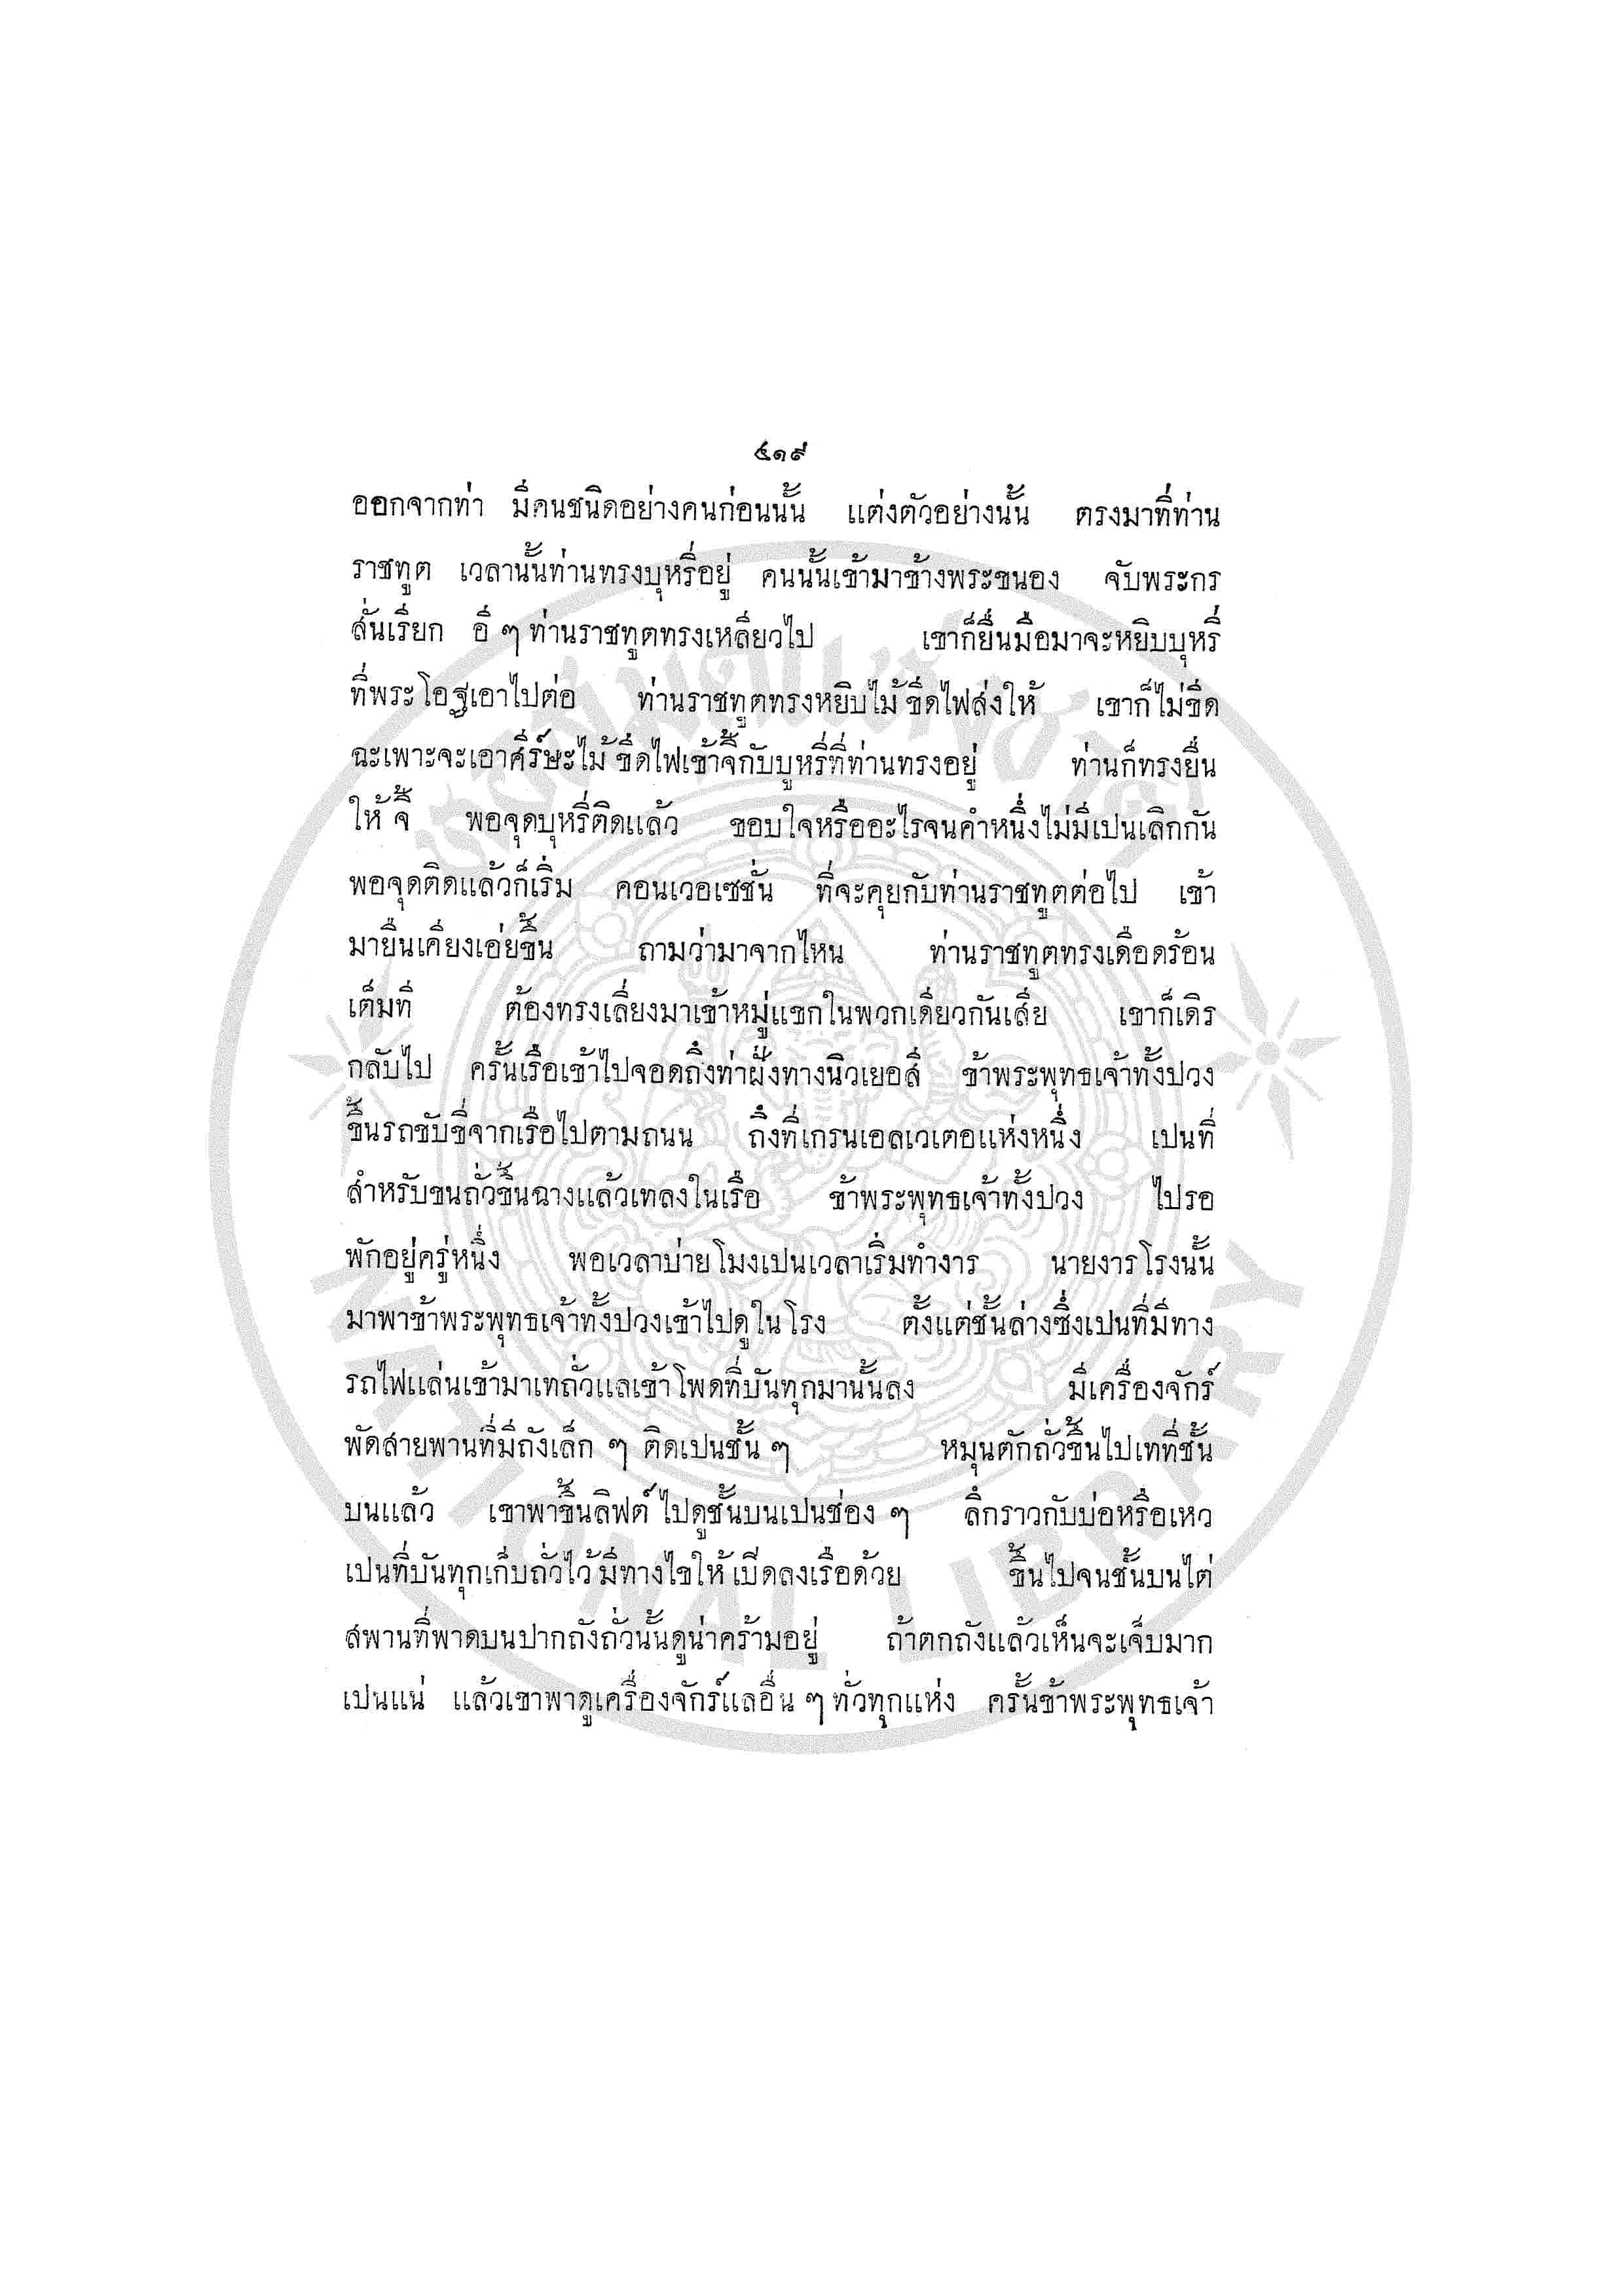 ๕๑๙
ออกจากท่า มีคนชนิดอย่างคนก่อนนั้น แต่งตัวอย่างนั้น ตรงมาที่ท่าน
ราชทูต เวลานั้นท่านทรงบุหรี่อยู่ คนนั้นเข้ามาข้างพระขนอง จับพระกร
สั่นเรียก อี ๆ ท่านราชทูตทรงเหลียวไป เขาก็ยื่นมือมาจะหยิบบุหรี่
ที่พระโอฐเอาไปต่อ ท่านราชทูตทรงหยิบไม้ขีดไฟส่งให้ เขาก็ไม่ขีด
ฉะเพาะจะเอาศีร์ษะไม้ขีดไฟเข้าจี้กับบุหรี่ที่ท่านทรงอยู่ ท่านก็ทรงยื่น
ให้จี้ พอจุดบุหรี่ติดแล้ว ขอบใจหรืออะไรจนคำหนึ่งไม่มีเปนเลิกกัน
พอจุดติดแล้วก็เริ่ม คอนเวอเซชั่น ที่จะคุยกับท่านราชทูตต่อไป เข้า
มายืนเคียงเอ่ยขึ้น ถามว่ามาจากไหน ท่านราชทูตทรงเดือดร้อน
เต็มที ต้องทรงเลี่ยงมาเข้าหมู่แขกในพวกเดียวกันเสีย เขาก็เดิร
กลับไป ครั้นเรือเข้าไปจอดถึงท่าฝั่งทางนิวเยอสี ข้าพระพุทธเจ้าทั้งปวง
ขึ้นรถขับขี่จากเรือไปตามถนน ถึงที่เกรนเอลเวเตอแห่งหนึ่ง เปนที่
สำหรับขนถั่วขึ้นฉางแล้วเทลงในเรือ ข้าพระพุทธเจ้าทั้งปวง ไปรอ
พักอยู่ครู่หนึ่ง พอเวลาบ่ายโมงเปนเวลาเริ่มทำงาร นายงารโรงนั้น
มาพาข้าพระพุทธเจ้าทั้งปวงเข้าไปดูในโรง ตั้งแต่ชั้นล่างซึ่งเปนที่มีทาง
รถไฟแล่นเข้ามาเทถั่วแลเข้าโพดที่บันทุกมานั้นลง มีเครื่องจักร์
พัดสายพานที่มีถังเล็ก ๆ ติดเปนชั้น ๆ หมุนตักถั่วขึ้นไปเทที่ชั้น
บนแล้ว เขาพาขึ้นลิฟต์ไปดูชั้นบนเปนช่อง ๆ ลึกราวกับบ่อหรือเหว
เปนที่บันทุกเก็บถั่วไว้มีทางไขให้เปิดลงเรือด้วย ขึ้นไปจนชั้นบนไต่
สพานที่พาดบนปากถังถั่วนั้นดูน่าคร้ามอยู่ ถ้าตกถังแล้วเห็นจะเจ็บมาก
เปนแน่ แล้วเขาพาดูเครื่องจักร์แลอื่น ๆ ทั่วทุกแห่ง ครั้นข้าพระพุทธเจ้า
หอสมุดแห่งชาติ
NATIONAL LIBRARY